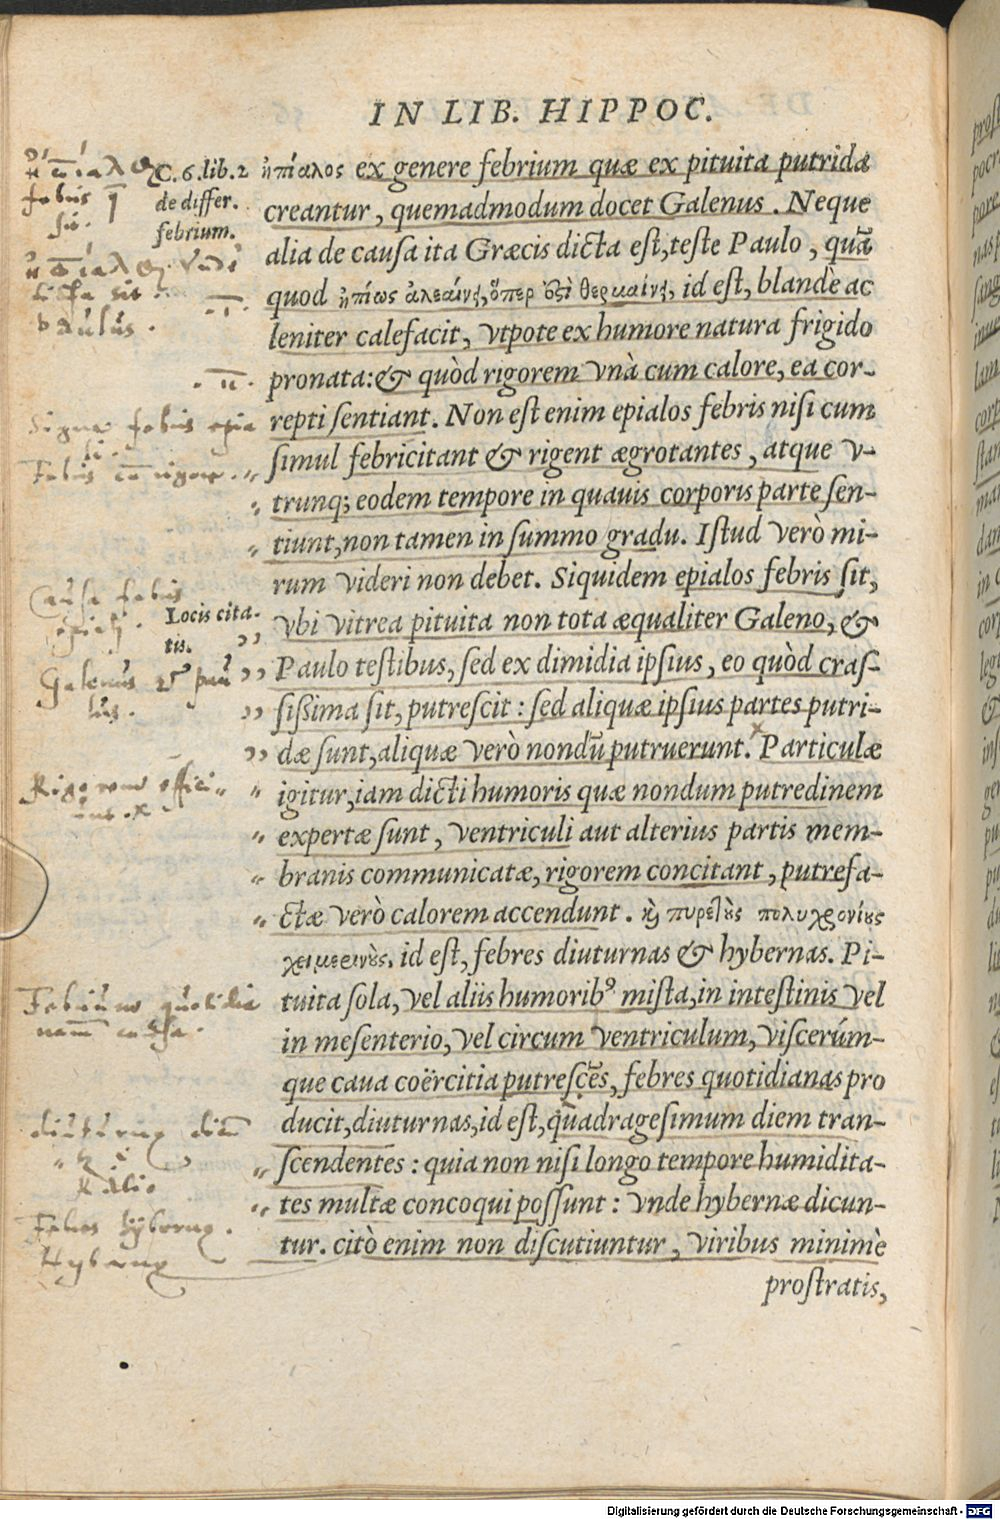 IN LIB. HIPPOC.
C. 6. lib. 2
de differ.
febrium.
ἠπίαλος ex genere febrium quæ ex pituita putrida
creantur, quemadmodum docet Galenus. Neque
alia de causa ita Græcis dicta est, teste Paulo, quā
quod ἠπίως ἀλεαίνει, ὅπερ ἐστὶ θερμαίνει, id est, blandè ac
leniter calefacit, vtpote ex humore natura frigido
pronata: & quòd rigorem vnà cum calore, ea cor-
repti sentiant. Non est enim epialos febris nisi cum
simul febricitant & rigent ægrotantes, atque v-
trunq; eodem tempore in quauis corporis parte sen-
tiunt, non tamen in summo gradu. Istud verò mi-
rum videri non debet. Siquidem epialos febris sit,
Locis cita-
tis.
vbi vitrea pituita non tota æqualiter Galeno, &
Paulo testibus, sed ex dimidia ipsius, eo quòd cras-
sissima sit, putrescit: sed aliquæ ipsius partes putri-
dæ sunt, aliquæ verò nondū putruerunt. Particulæ
igitur, iam dicti humoris quæ nondum putredinem
expertæ sunt, ventriculi aut alterius partis mem-
branis communicatæ, rigorem concitant, putrefa-
ctæ verò calorem accendunt. καὶ πυρετοὺς πολυχρονίους
χειμερινοὺς, id est, febres diuturnas & hybernas. Pi-
tuita sola, vel aliis humoribꝰ mista, in intestinis vel
in mesenterio, vel circum ventriculum, viscerúm-
que caua coërcitia putrescēs, febres quotidianas pro
ducit, diuturnas, id est, quadragesimum diem tran-
scendentes: quia non nisi longo tempore humidita-
tes multæ concoqui possunt: vnde hybernæ dicun-
tur. citò enim non discutiuntur, viribus minimè
prostratis,
ἠπίαλος
febris
Paulus.
Febris cū rigore.
Causa febris
epiali.
Galenus & Pau
lus.
Febrium quotidia
narū causa.
Febres hybernę.
Hybernę
Digitalisierung gefördert durch die Deutsche Forschungsgemeinschaft - DFG